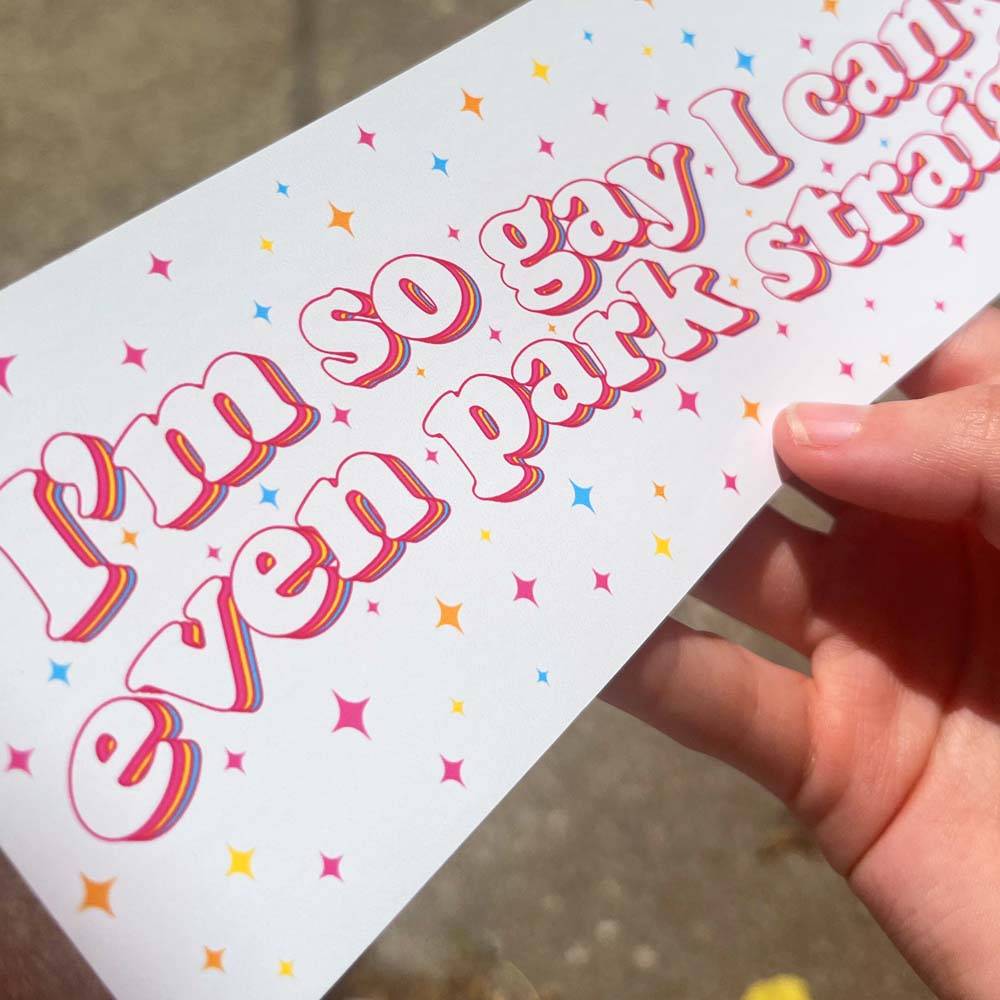 I'm so gay I can'
even park straig